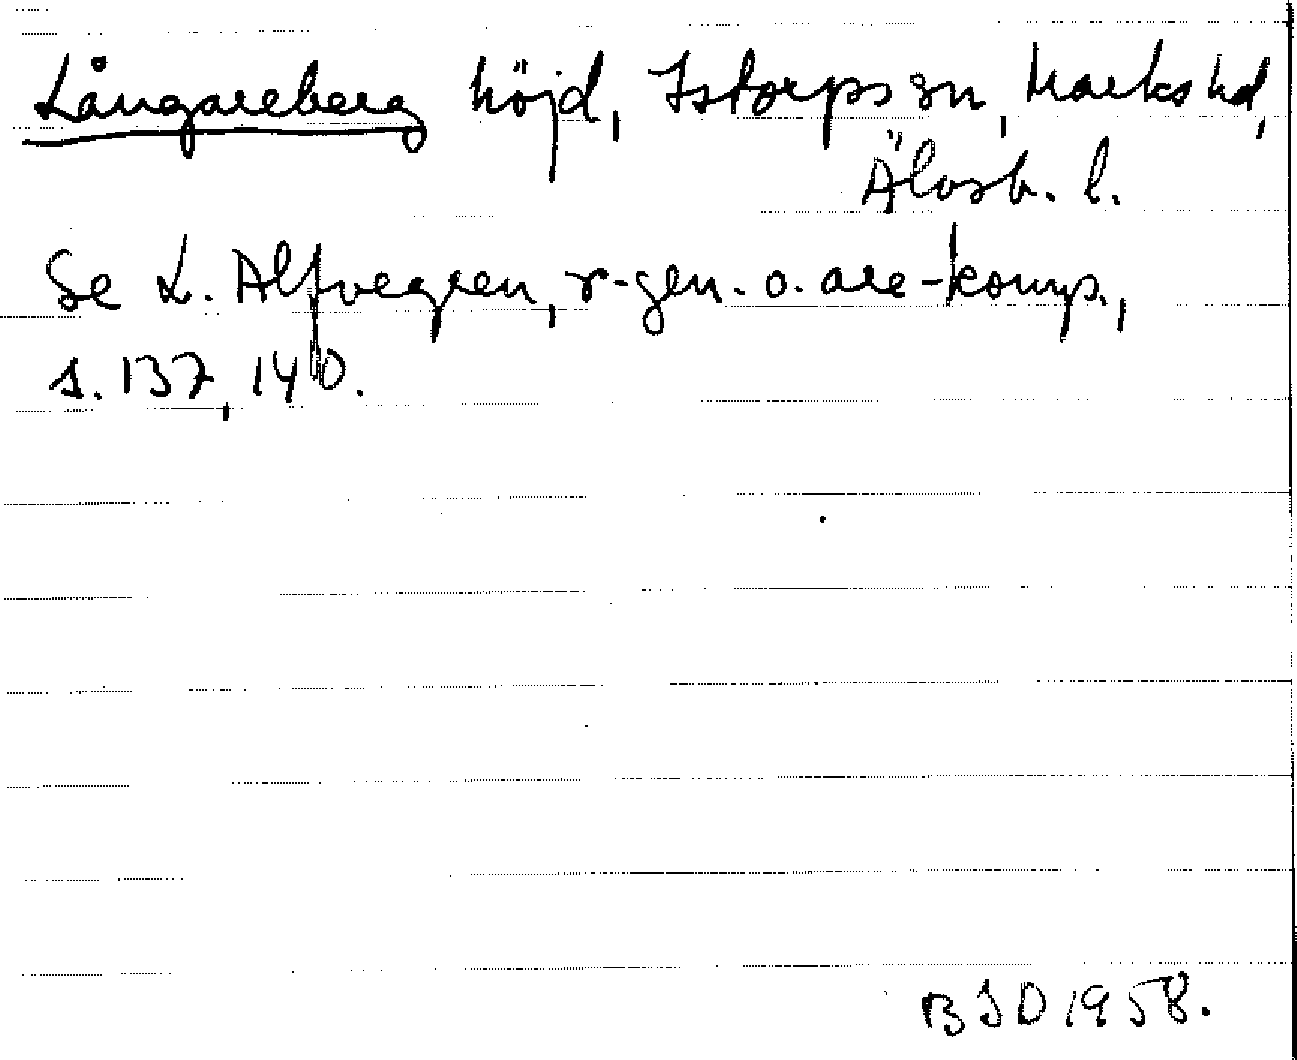 Långareberg höjd, Istorps sn, Marks hd,
Älvsb. l.
Se L. Alfvegren, r-gen. o. are-komp.,
s. 137, 140.
BJD 1958.